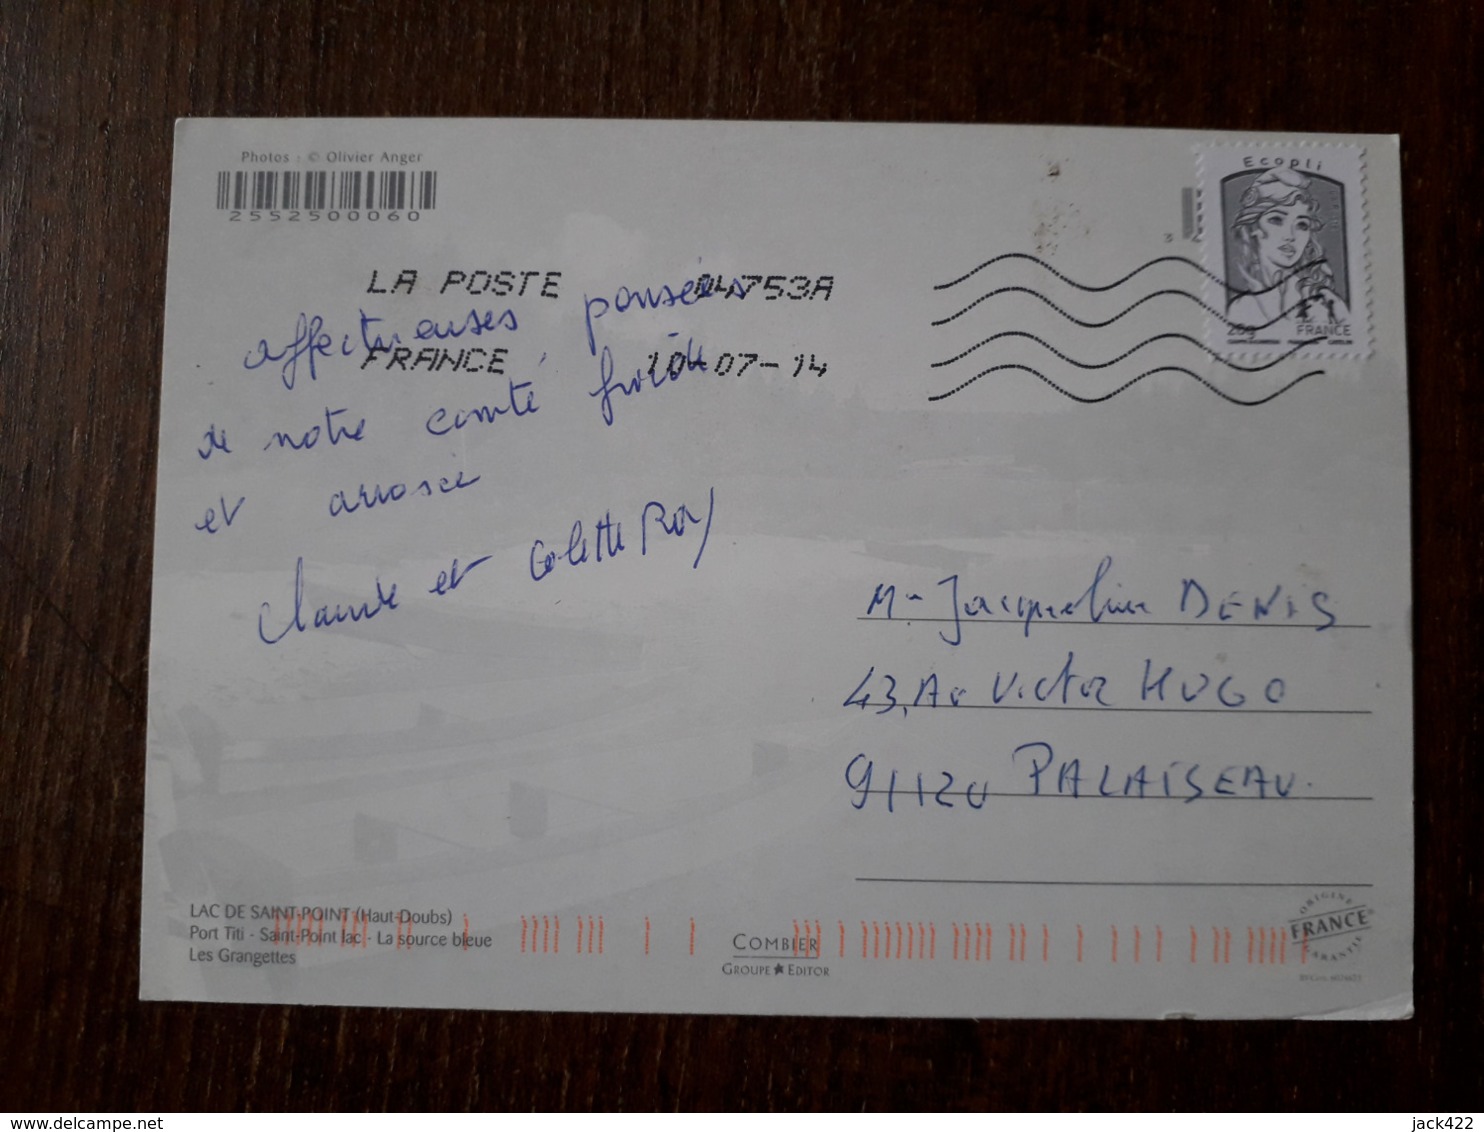 Photos : © Olivier Anger
2552500060
Ecopli
20g
FRANCE
LA POSTE 04753A
FRANCE 10-07-14
affectueuses pensées
de notre comté froide
et arrosée
Claude et Colette Roy
Me Jacqueline DENIS
43, Av Victor HUGO
91120 PALAISEAU.
LAC DE SAINT-POINT (Haut-Doubs)
Port Titi - Saint-Point lac - La source bleue
Les Grangettes
COMBIER
GROUPE ★ EDITOR
ORIGINE
FRANCE
GARANTIE
delcampe.net
jack422